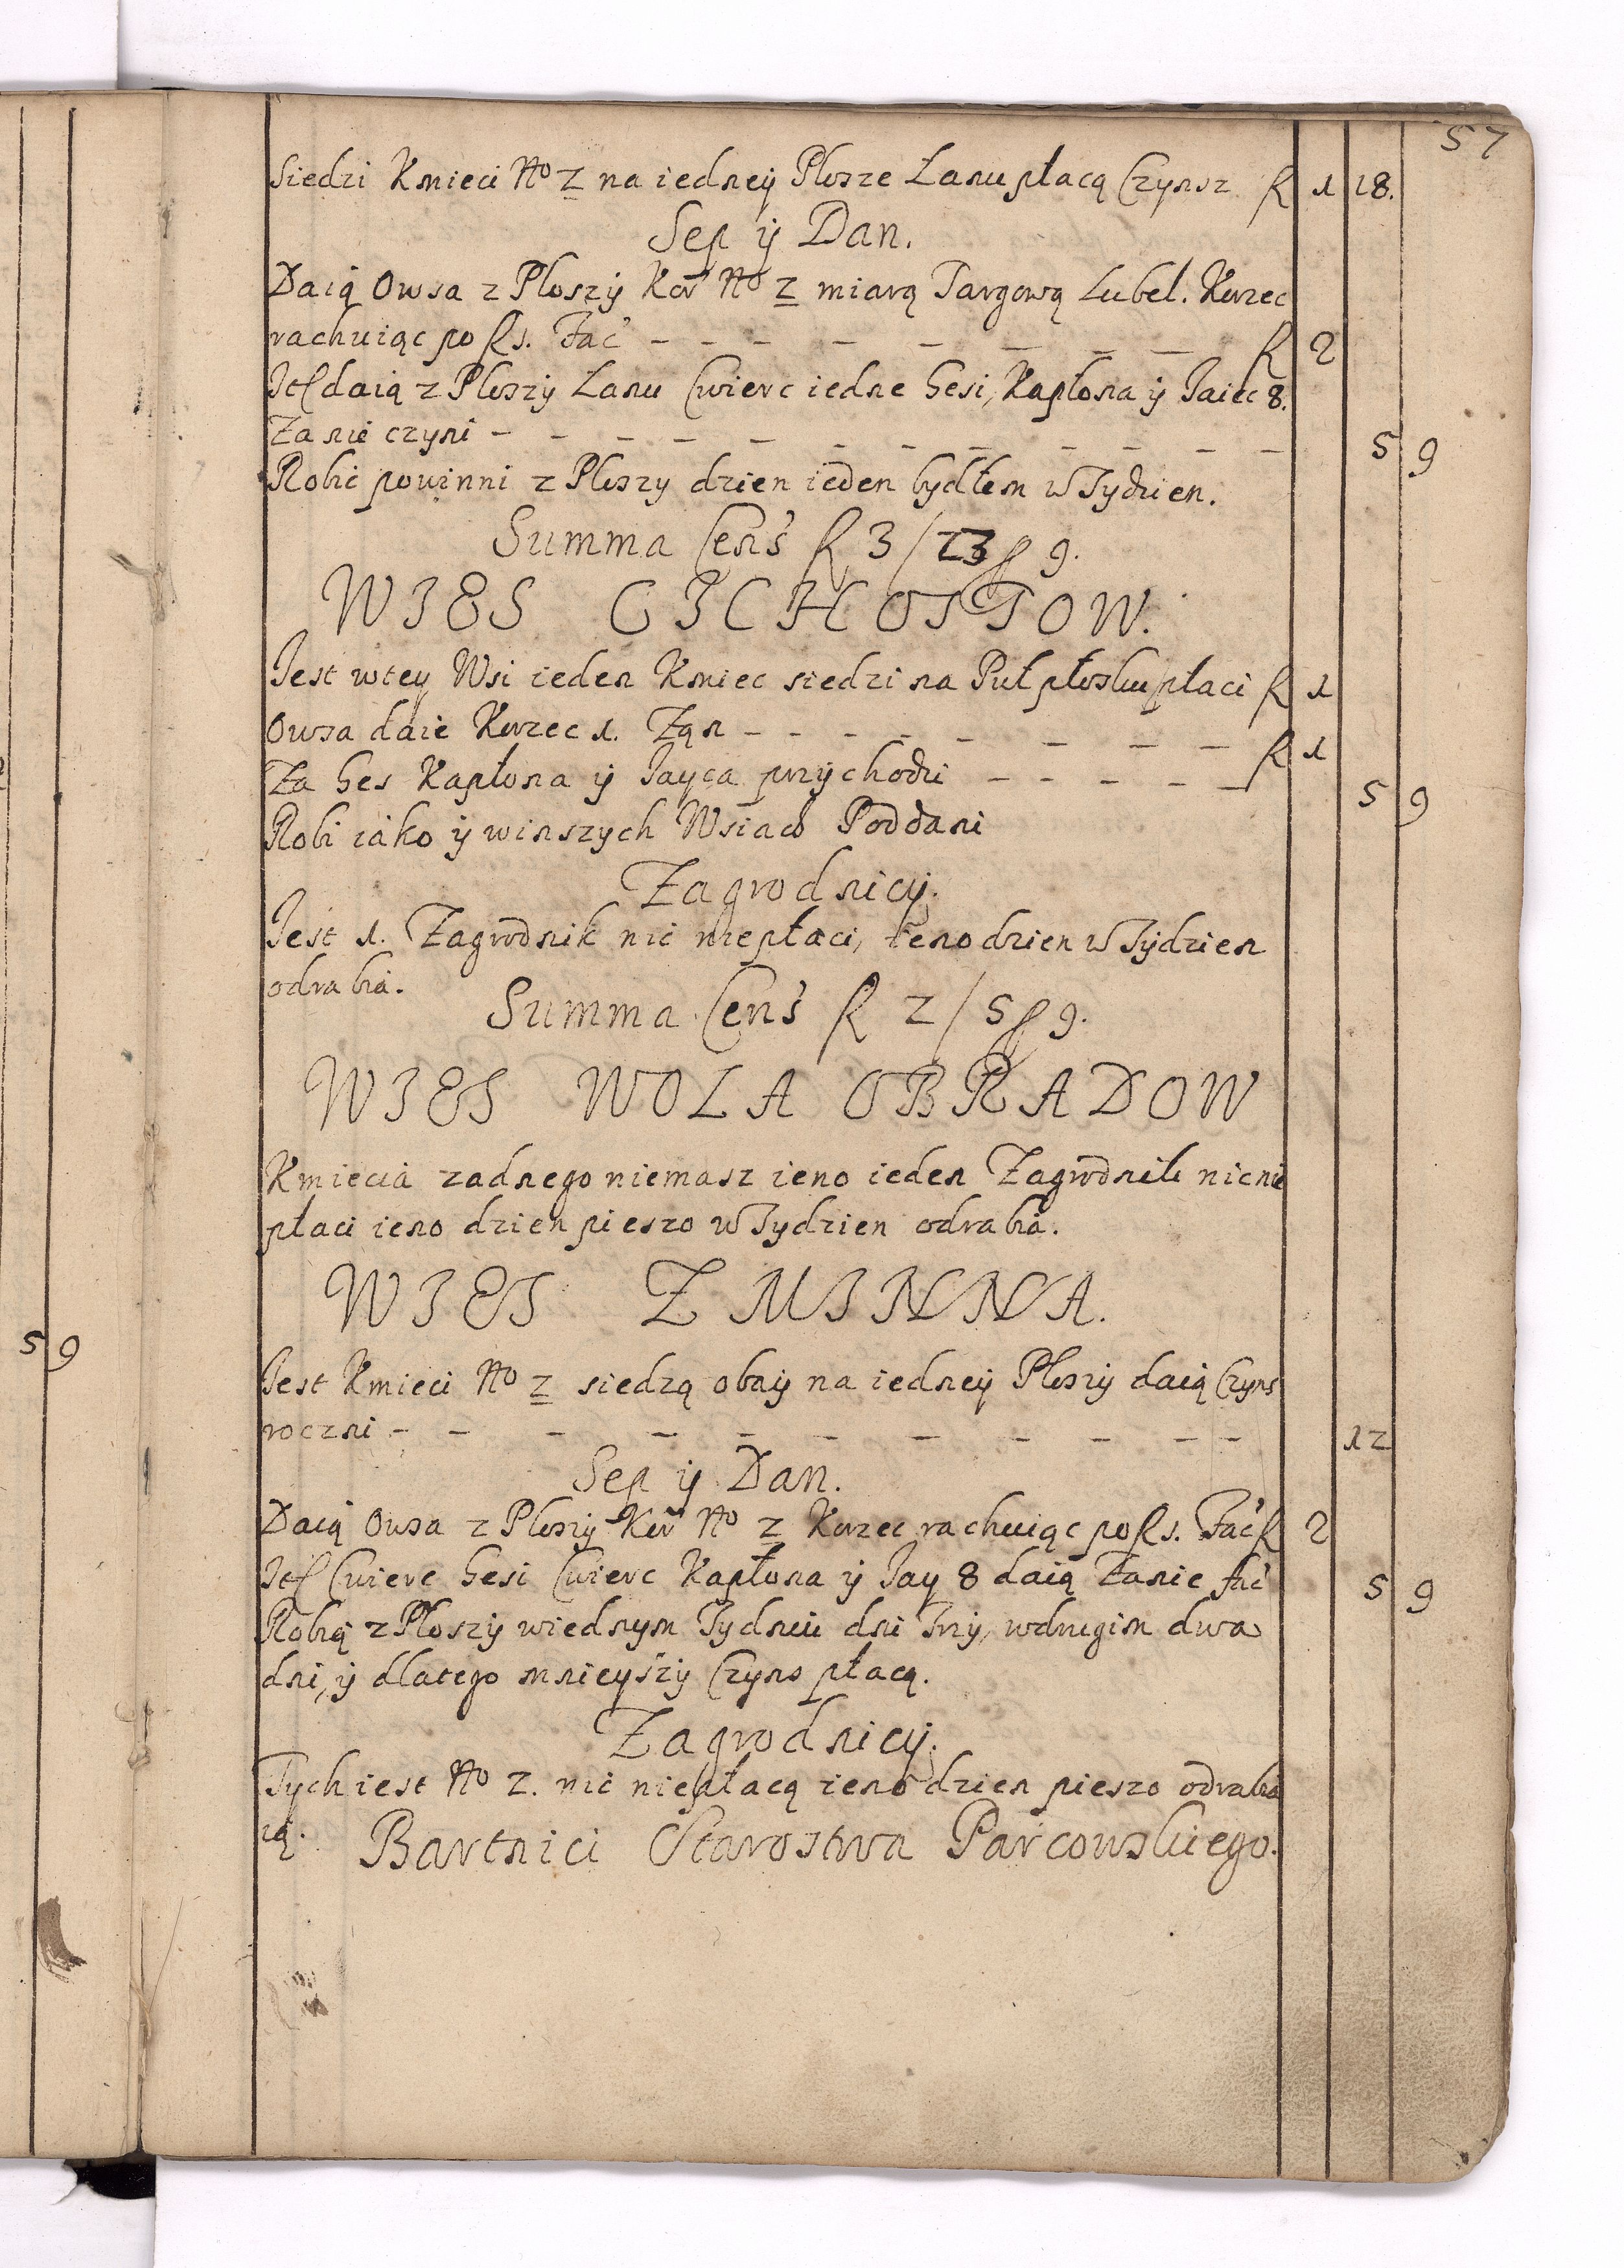 57
Siedzi Kmieci No 2 na iedney Plosze Łanu płacą Czynsz f 1 18.
Sep ÿ Dan.
Daią Owsa z Ploszÿ Kor No 2 miarą Targową Lubel. Korzec
rachuiąc po f 1. Fać — — — — — — — — f 2
It daią z Ploszÿ Łanu Cwierc iedne Gesi, Kapłona ÿ Jaiec 8.
Za nie czyni — — — — — — — — — — — 5 9
Robic powinni z Ploszy dzien ieden bydłem w Tydzien.
Summa Cens f 3 / 23 / 9.
WIES CICHOSTOW.
Jest wtey Wsi ieden Kmiec siedzi na Puł płosku płaci f 1
Owsa daie Korzec 1. Zań — — — — — — — — f 1
Za Ges Kapłona ÿ Jayca przÿchodzi — — — — — 5 9
Robi iako ÿ winszych Wsiach Poddani
Zagrodnicÿ.
Jest 1. Zagrodnik nic niepłaci, ieno dzien w Tÿdzien
odrabia.
Summa Cens f 2 / 5 / 9.
WIES WOLA OBRADOW
Kmiecia zadnego niemasz ieno ieden Zagrodnik nic nie
płaci ieno dzien pieszo w Tydzien odrabia.
WIES ZMINNA.
5 9
Jest Kmieci No 2 siedzą obaÿ na iedneÿ Ploszÿ daią Czyns
roczni — — — — — — — — — — — 12
Sep ÿ Dan.
Daią Owsa z Ploszÿ Kor No 2 Korzec rachuiąc po f 1. Fać f 2
It Cwierc Gesi Cwierc Kapłona ÿ Jay 8 daią Zanie fać 5 9
Robią z Płoszÿ wiednym Tydniu dni Trzÿ, wdrugim dwa
dni, ÿ dlatego mnieyszÿ Czyns płacą.
Zagrodnicÿ.
Tych iest No 2. nic niepłacą ieno dzien pieszo odrabia
ią.
Bartnici Starostwa Parcowskiego.